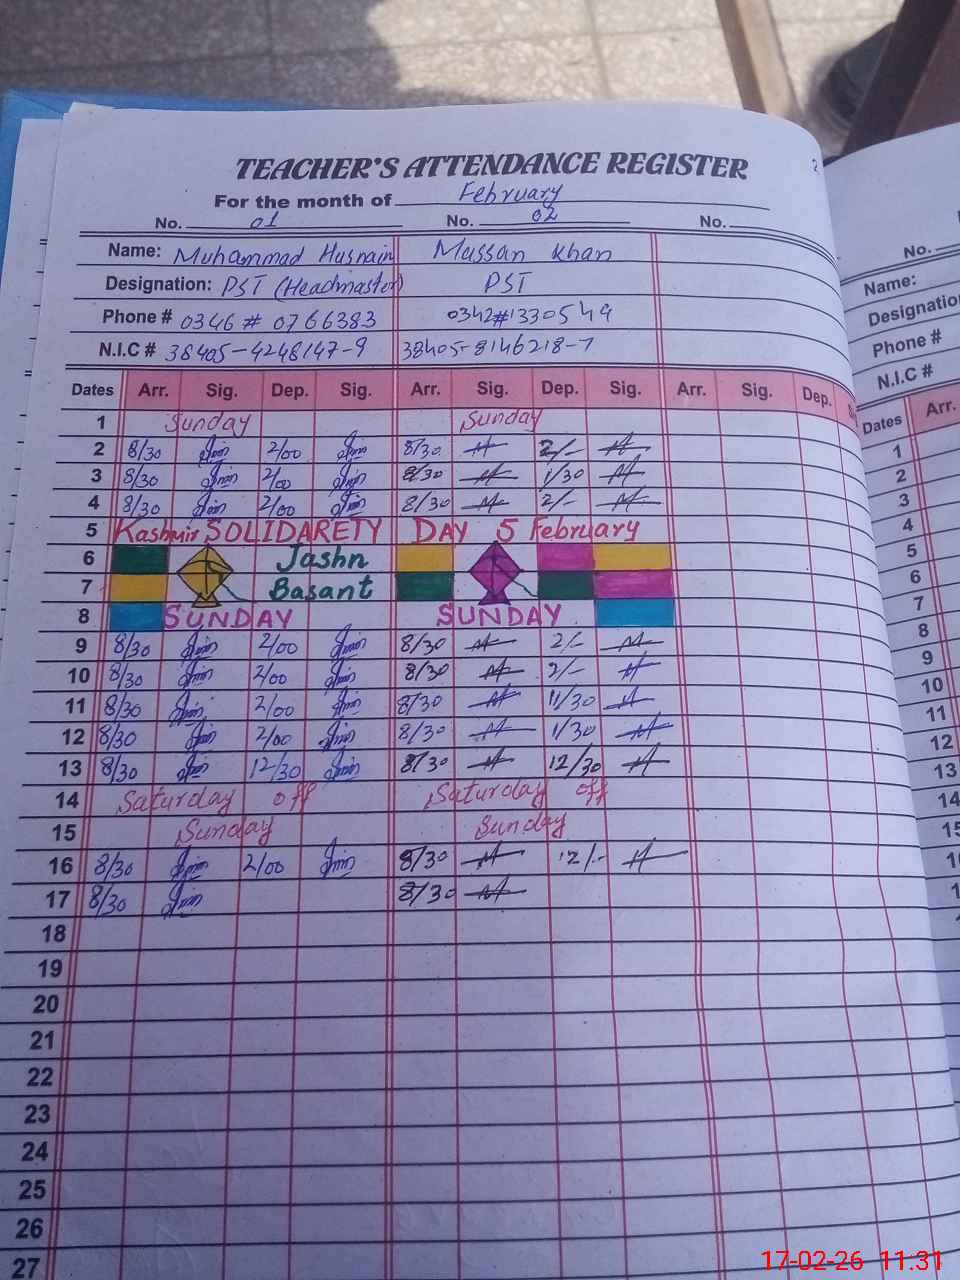 TEACHER'S ATTENDANCE REGISTER
2
For the month of February
No. 01 No. 02 No.
Name: Muhammad Husnain Mussan Khan
Designation: PST (Headmaster) PST
Phone # 0346 # 0766383 0342#1330549
N.I.C # 38405-4248147-9 38405-8146218-7
Dates Arr. Sig. Dep. Sig. Arr. Sig. Dep. Sig. Arr. Sig. Dep.
1 Sunday Sunday
2 8/30 2/00 8/30 2/-
3 8/30 2/00 8/30 1/30
4 8/30 2/00 8/30 2/-
5 Kashmir SOLIDARETY DAY 5 February
6 Jashn
7 Basant
8 SUNDAY SUNDAY
9 8/30 2/00 8/30 2/-
10 8/30 2/00 8/30 2/-
11 8/30 2/00 8/30 11/30
12 8/30 2/00 8/30 1/30
13 8/30 12/30 8/30 12/30
14 Saturday off Saturday off
15 Sunday Sunday
16 8/30 2/00 8/30 12/-
17 8/30 8/30
18
19
20
21
22
23
24
25
26
27
No.
Name:
Designatio
Phone #
N.I.C #
Dates Arr.
1
2
3
4
5
6
7
8
9
10
11
12
13
14
15
17-02-26 11:31